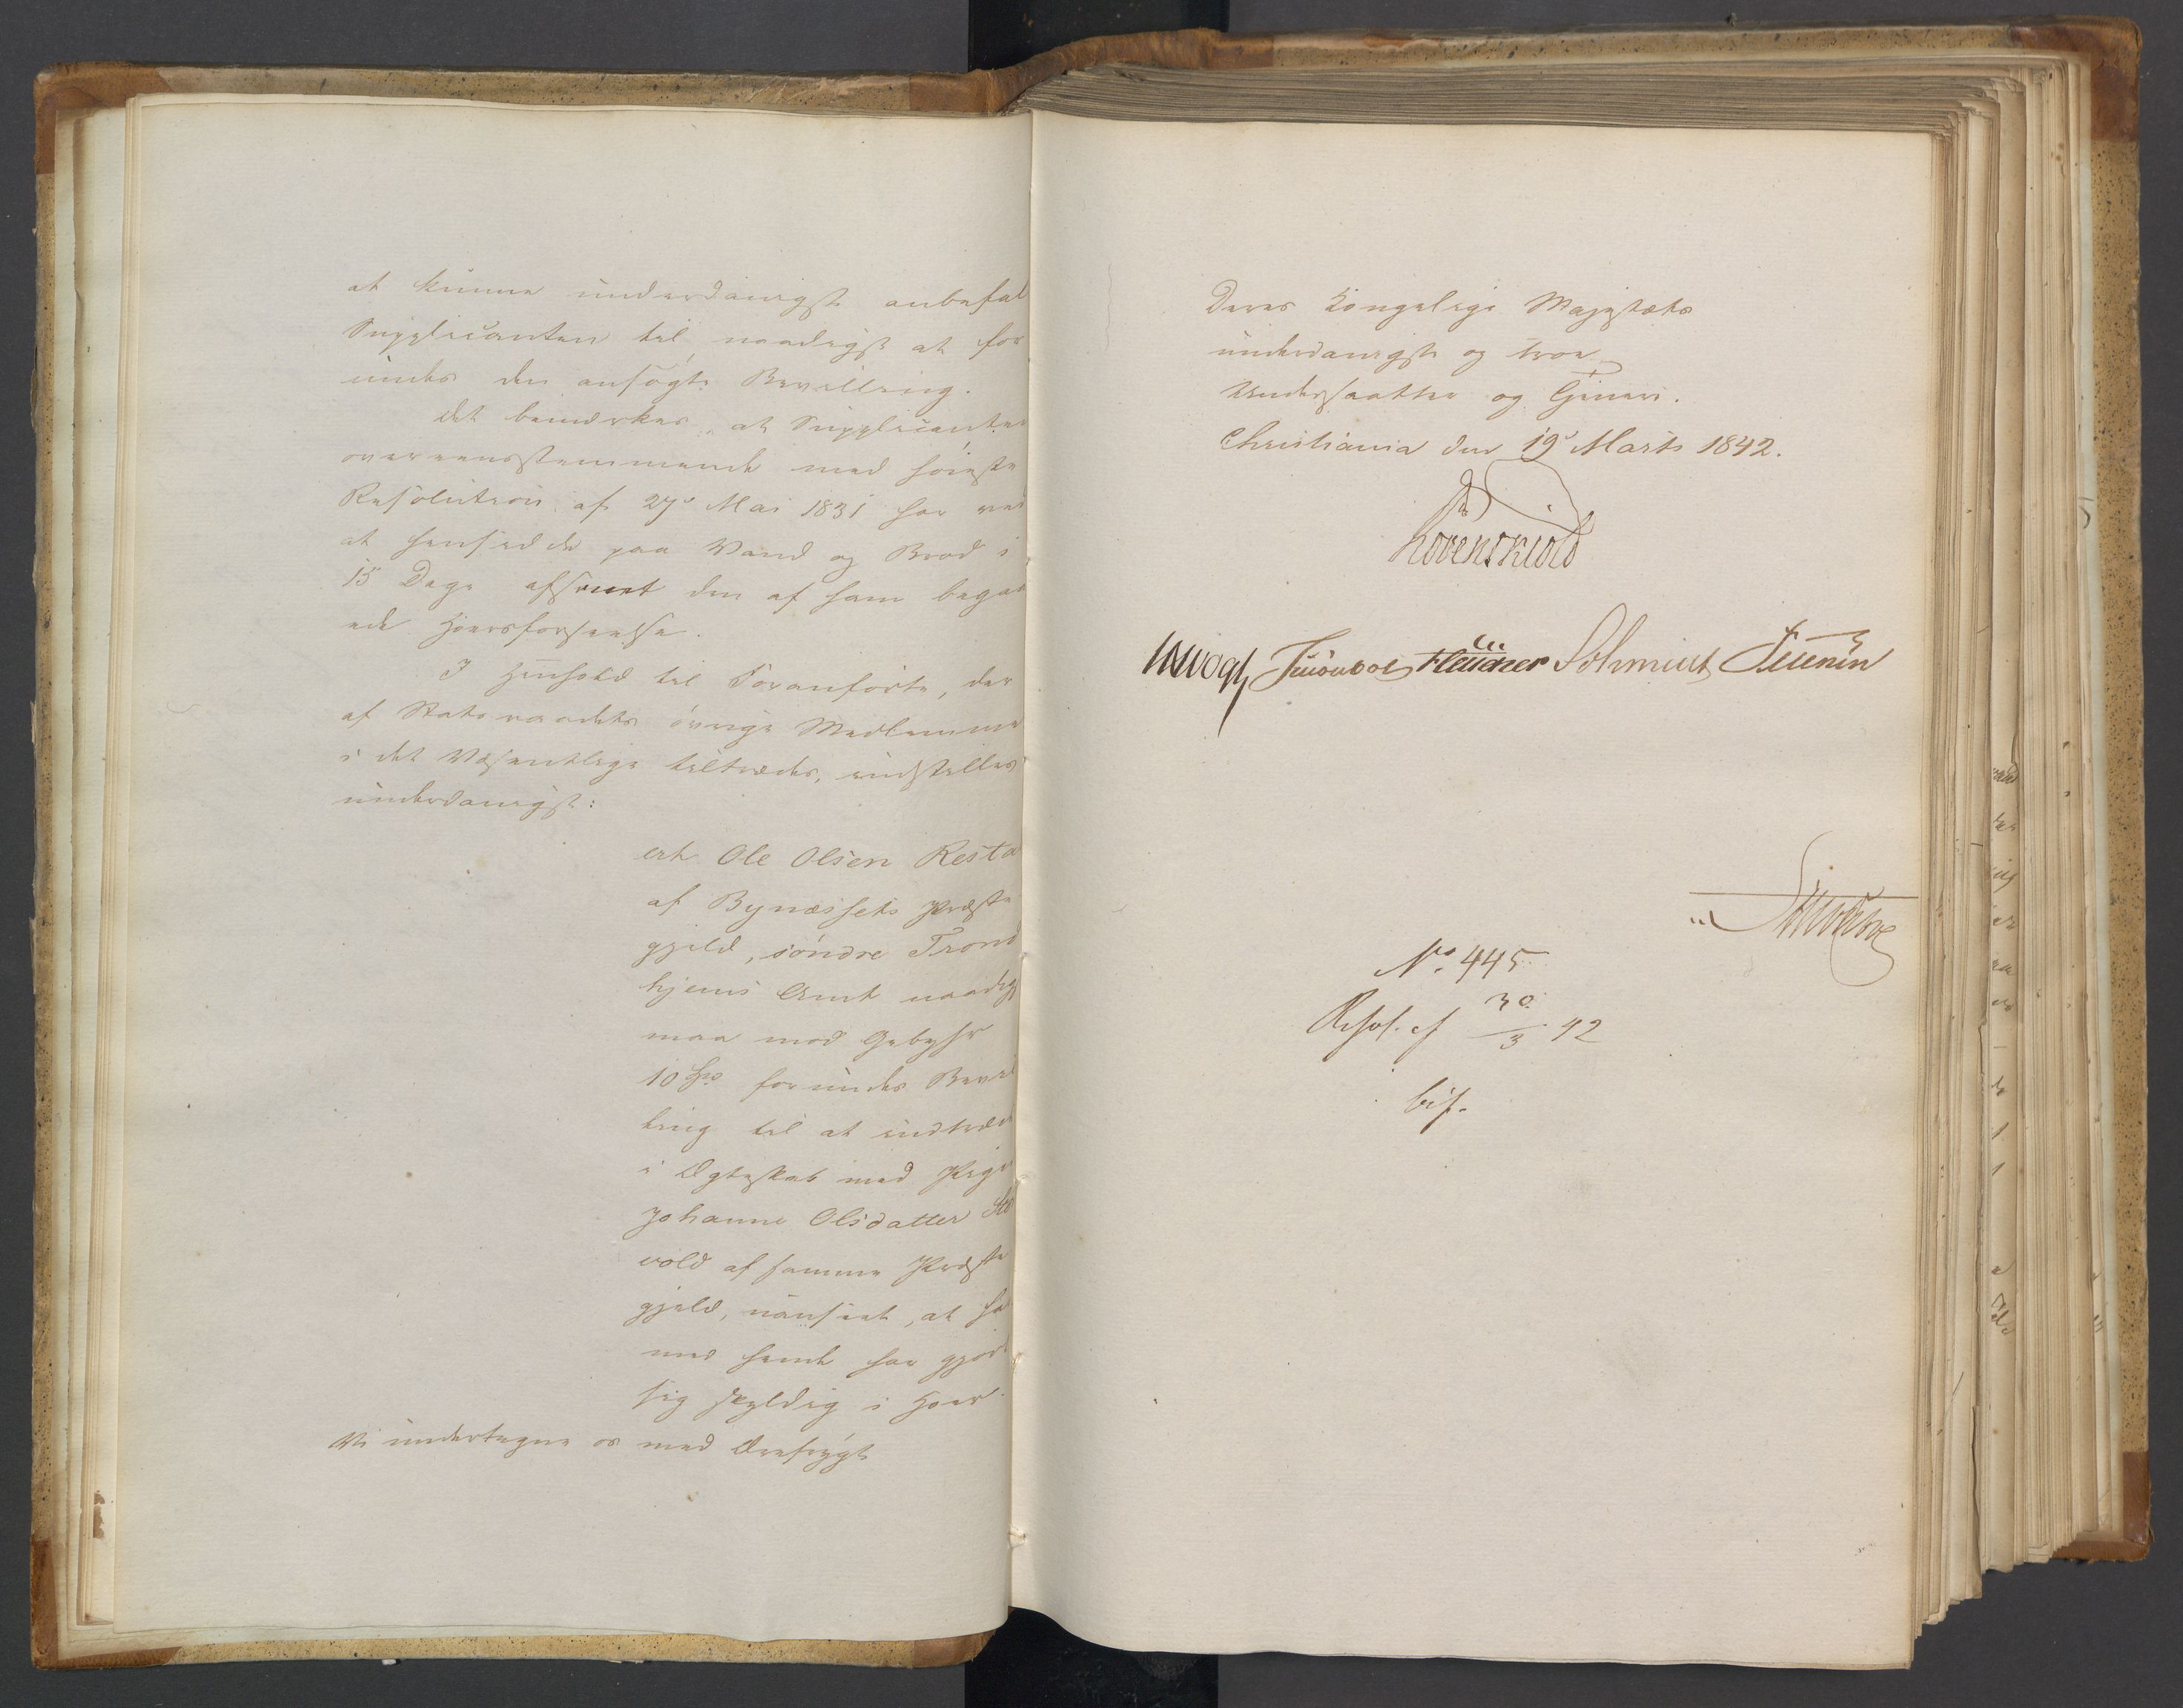 at kunne underdanigst anbefal
Supplicanten til naadigst at for
undes den ansøgte Bevilling.
Det bemærkes, at Supplicanten
overeensstemmende med høieste
Resolution af 27de Mai 1831 har ved
at hensidde paa Vand og Brød i
15 Dage afsonet den af ham begaa
ede Hoersforseelse.
I Henhold til Foranførte, der
af Statsraadets øvrige Medlemme
i det Væsentlige tiltrædes, indstilles
underdanigst:
at Ole Olsen Resta
af Bynæssets Præste
gjeld, søndre Trond
hjems Amt naadigst
maa mod Gebyhr
10 forundes Bevil
ling til at indtræde
i Ægteskab med Pige
Johanne Olsdatter
vold af samme Præste
gjeld, uanseet, at ha
med hende har gjort
sig skyldig i Hoer.
Vi undertegne os med Ærefrygt
Deres Kongelige Majestæts
underdanigste og troe
Undersaatter og Tjenere.
Christiania den 19de Marts 1842.
Løvenskiold
Vogt Fleischer Schmidt
No. 445
Resol. af 30/3 42
bif.